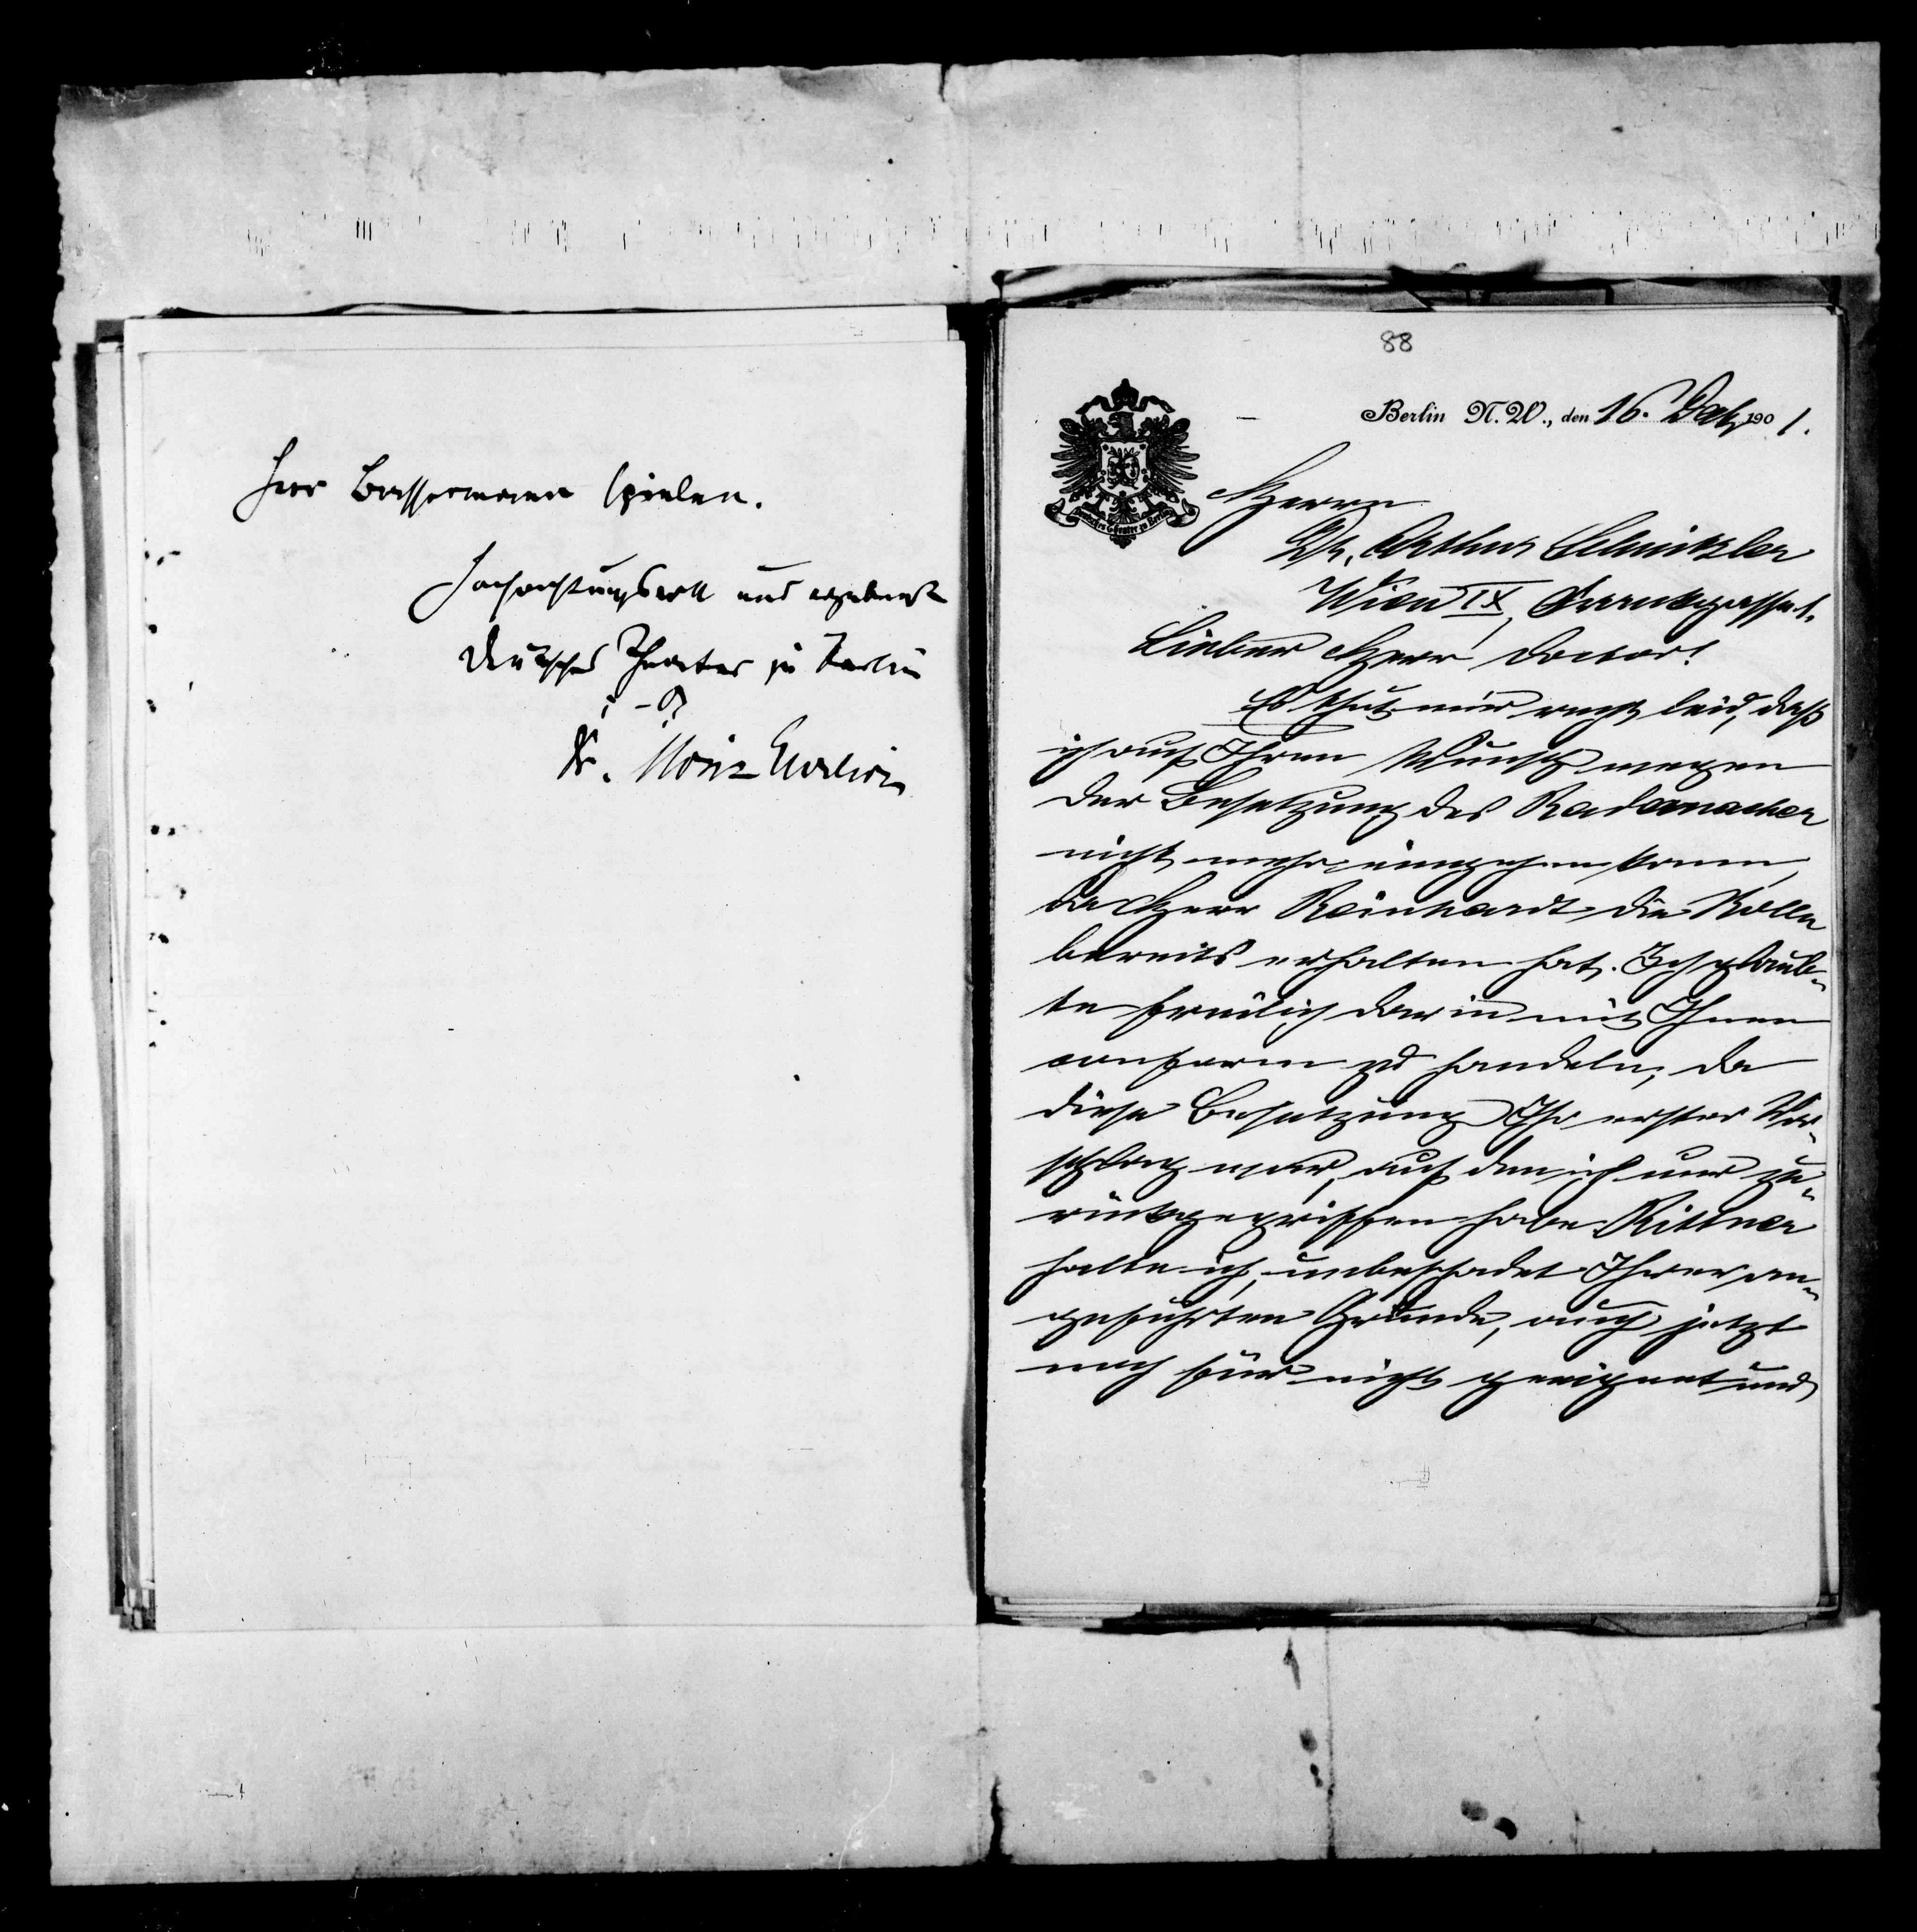 Herr Bassermann spielen.
Hochachtungsvoll und ergebenst
Deutsches Theater zu Berlin
Dr. Moriz Ehrlich
88
Berlin N. W., den 16. Dez. 1901.
Deutsches Theater zu Berlin
Herrn
Dr. Arthur Schnitzler
Wien IX, Frankgasse 1.
Lieber Herr Doctor!
Es thut mir recht leid, daß
ich auf Ihren Wunsch wegen
der Besetzung des Rademacher
nicht mehr eingehen kann,
da Herr Reinhardt die Rolle
bereits erhalten hat. Ich glaub-
te freilich darin mit Ihnen
conform zu handeln, da
diese Besetzung Ihr erster Vor-
schlag war, auf den ich nur zu-
rückgegriffen habe. Rittner
halte ich, unbeschadet Ihrer an-
geführten Gründe, auch jetzt
noch für nicht geeignet und